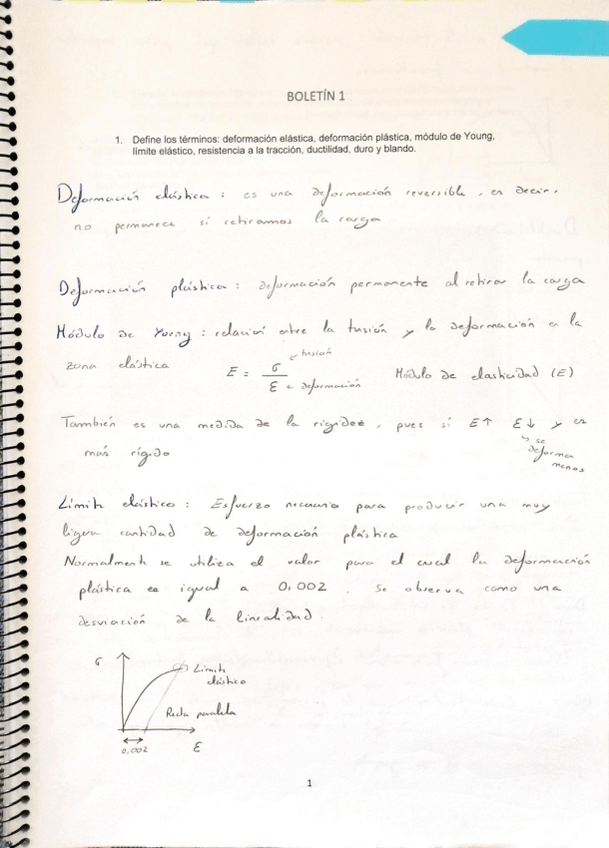 BOLETÍN 1
1. Define los términos: deformación elástica, deformación plástica, módulo de Young,
límite elástico, resistencia a la tracción, ductilidad, duro y blando.
Deformación elástica : es una deformación reversible, es decir,
no permanece si retiramos la carga
Deformación plástica : deformación permanente al retirar la carga
Módulo de Young : relación entre la tensión y la deformación en la
zona elástica E = σ / ε ← tensión ← deformación Módulo de elasticidad (E)
También es una medida de la rigidez, pues si E↑ ε↓ y es
más rígido ↳ se deforma menos
Límite elástico : Esfuerzo necesario para producir una muy
ligera cantidad de deformación plástica
Normalmente se utiliza el valor para el cual la deformación
plástica es igual a 0,002. Se observa como una
desviación de la linealidad.
σ Límite
elástico
Recta paralela
0,002 ε
1